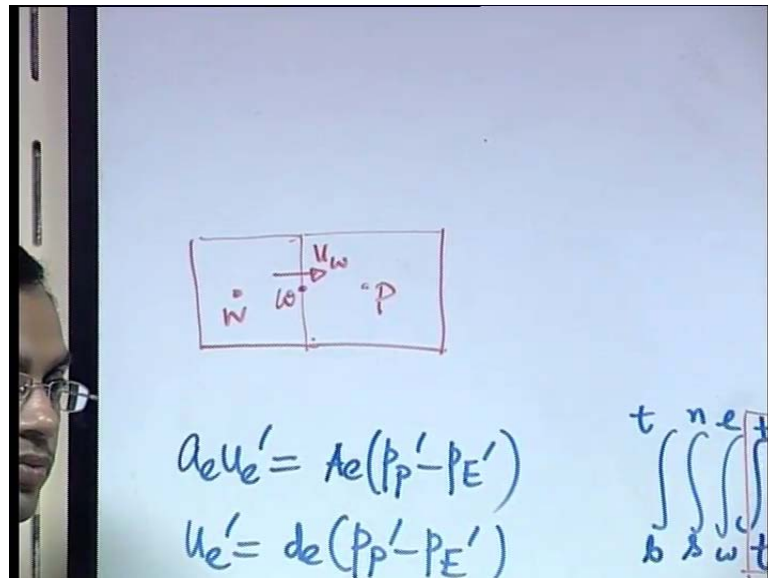 u_w
W w P
a_e u_e' = A_e(p_P' - p_E')
u_e' = d_e(p_P' - p_E')
t n e t
∫ ∫ ∫ ∫
b s w t